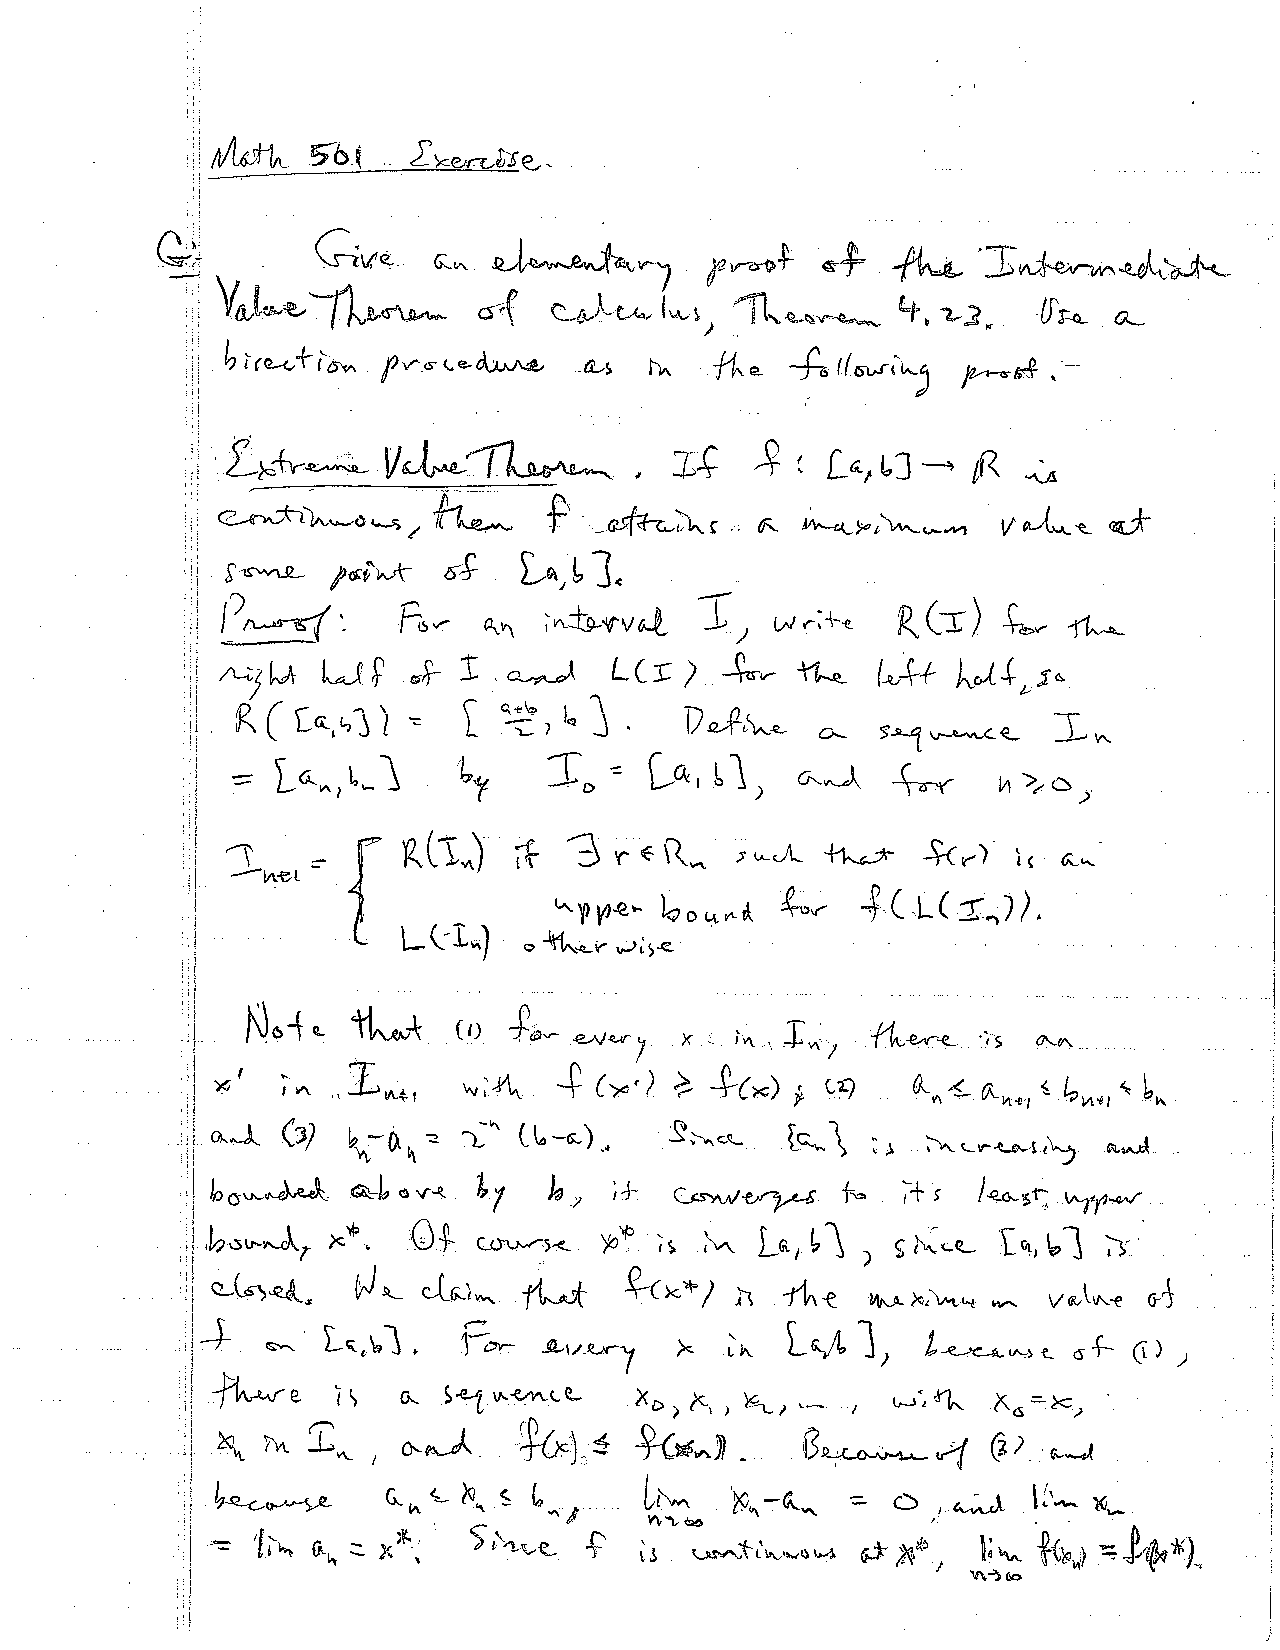 Math 501 Exercise.
G. Give an elementary proof of the Intermediate
Value Theorem of calculus, Theorem 4.23. Use a
bisection procedure as in the following proof.
Extreme Value Theorem. If f: [a,b] → R is
continuous, then f attains a maximum value at
some point of [a,b].
Proof: For an interval I, write R(I) for the
right half of I and L(I) for the left half, so
R([a,b]) = [(a+b)/2, b]. Define a sequence In
= [an, bn] by I0 = [a,b], and for n ≥ 0,
In+1 = { R(In) if ∃ r ∈ Rn such that f(r) is an
upper bound for f(L(In)).
L(In) otherwise
Note that (1) for every x in In, there is an
x' in In+1 with f(x') ≥ f(x); (2) an ≤ an+1 ≤ bn+1 ≤ bn
and (3) bn-an = 2^-n (b-a). Since {an} is increasing and
bounded above by b, it converges to it's least upper
bound, x*. Of course x* is in [a,b], since [a,b] is
closed. We claim that f(x*) is the maximum value of
f on [a,b]. For every x in [a,b], because of (1),
there is a sequence x0, x1, x2, ..., with x0 = x,
xn in In, and f(x) ≤ f(xn). Because of (3) and
because an ≤ xn ≤ bn, lim n→∞ xn-an = 0, and lim xn
= lim an = x*. Since f is continuous at x*, lim n→∞ f(xn) = f(x*).